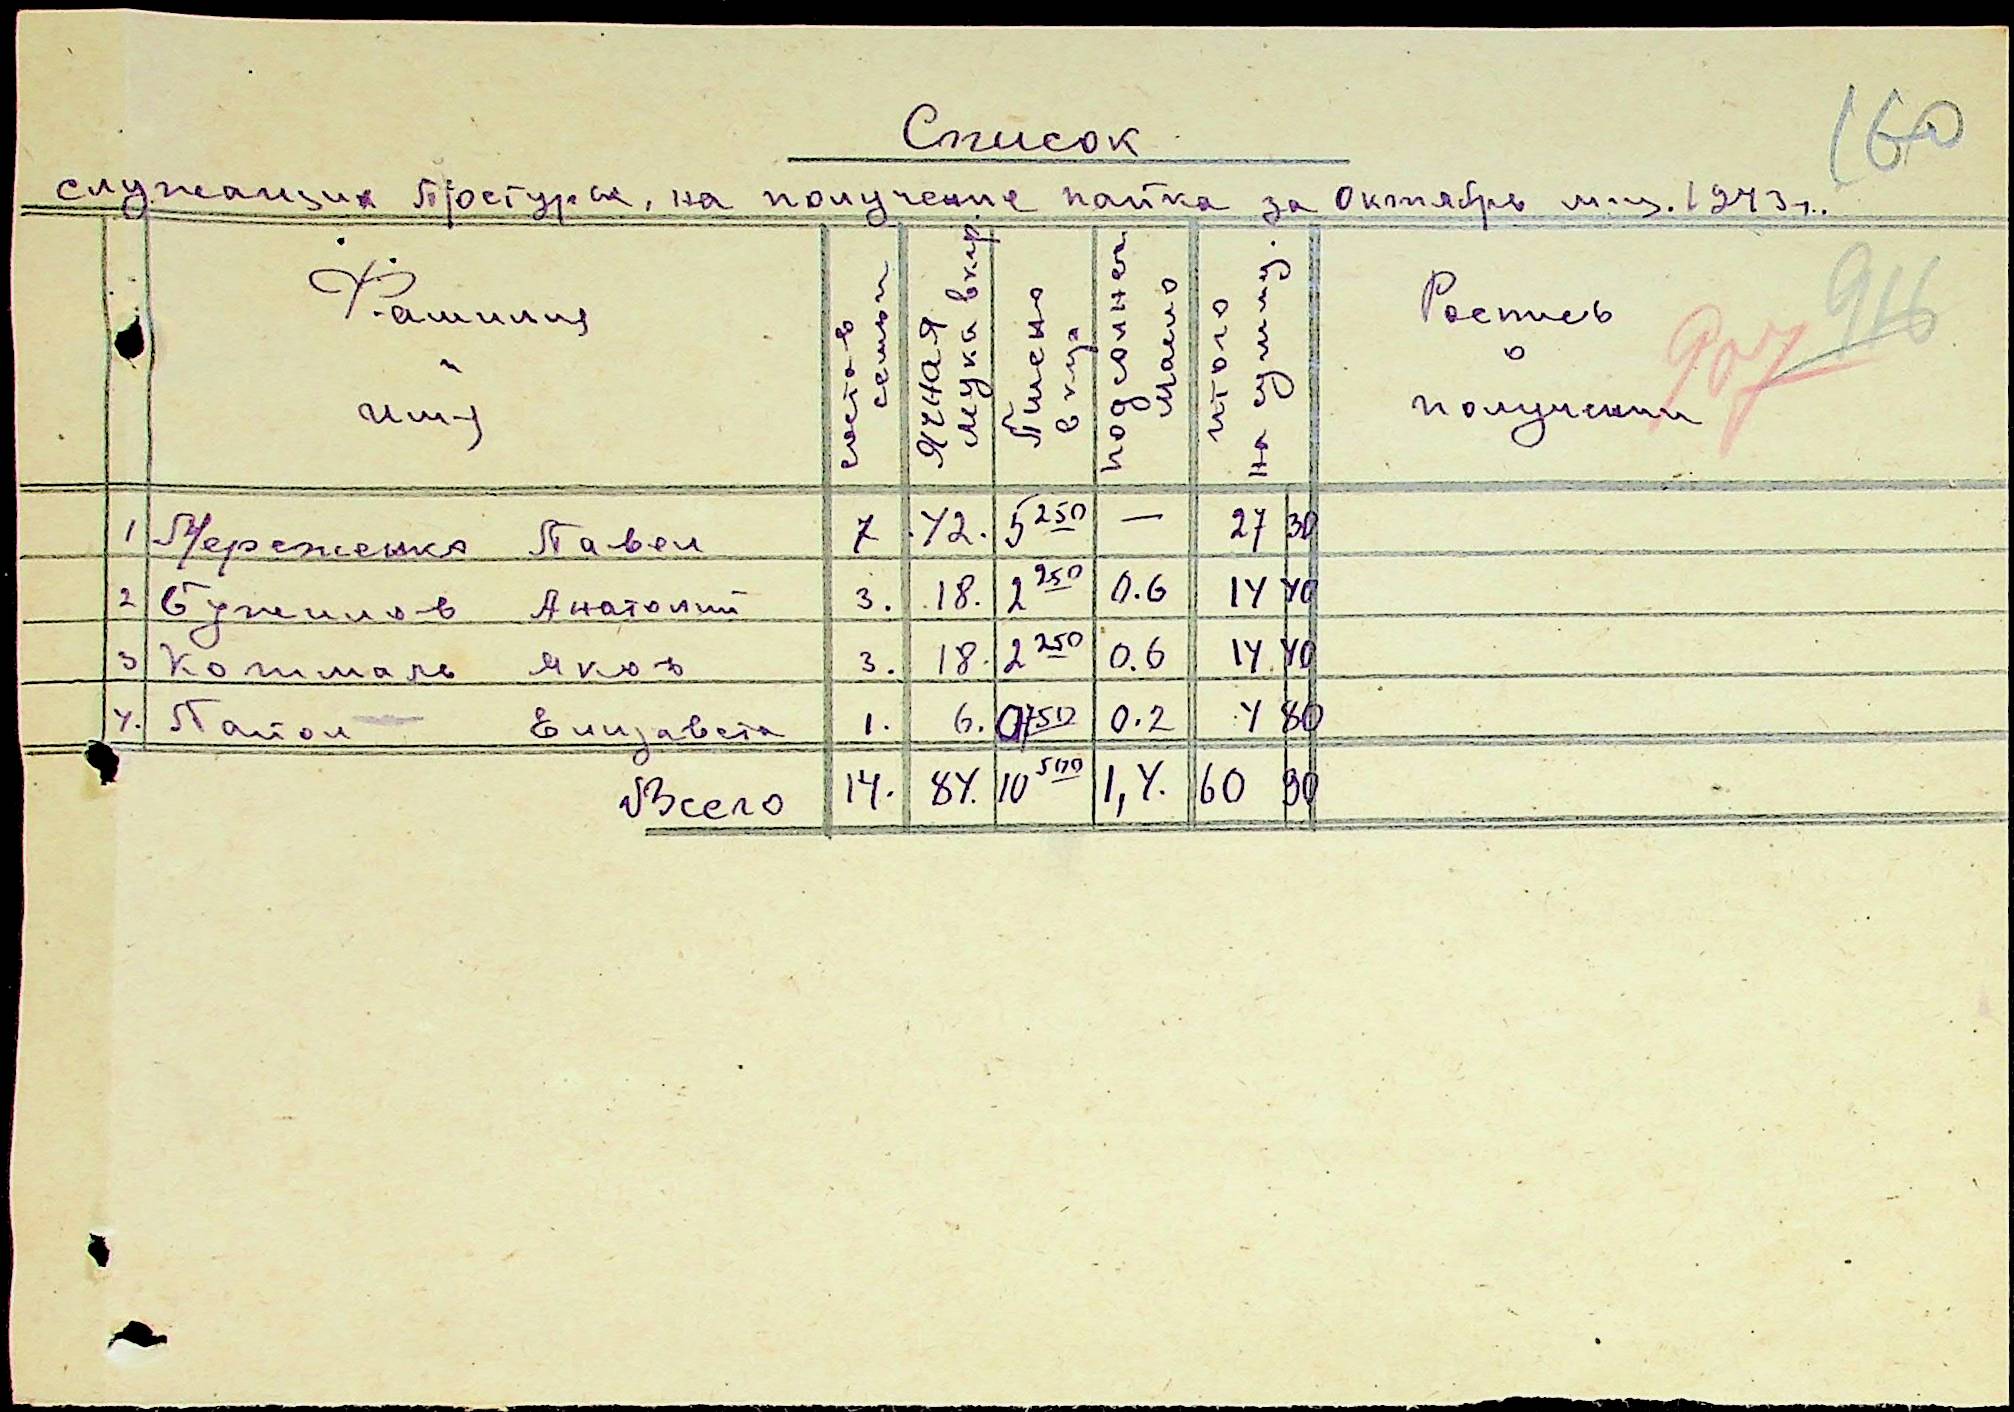 160
Список
служащих Претуры, на получение пайка за Октябрь м-ц. 1943 г.
Фамилия и имя | состав семьи | Ячная мука в кгр | Пшено в кгр | подсолнеч масло | итого на сумму. | Роспись о получении
916
907
1 Мереженко Павел 7 42. 5 250 — 27 30
2 Бужилов Анатолий 3. 18. 2 250 0.6 14 40
3 Яков 3. 18. 2 250 0.6 14 40
4. Елизавета 1. 6. 0 750 0.2 4 80
Всего 14. 84. 10 500 1,4. 60 90